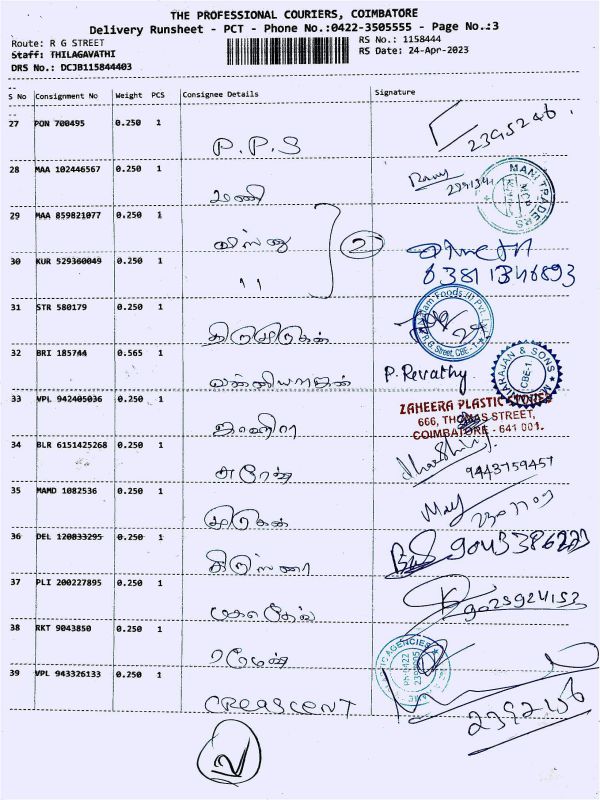 THE PROFESSIONAL COURIERS, COIMBATORE
Delivery Runsheet - PCT - Phone No.:0422-3505555 - Page No.:3
Route: R G STREET
RS No.: 1158444
Staff: THILAGAVATHI
RS Date: 24-Apr-2023
DRS No.: DCJB115844403
S No Consignment No Weight PCS Consignee Details Signature
27 PON 700495 0.250 1
P.P.S
2395246
28 MAA 102446567 0.250 1
மணி
MANI TRADERS
29 MAA 859821077 0.250 1
விஸ்னு
2
30 KUR 529360049 0.250 1
"
31 STR 580179 0.250 1
Foods (I) Pvt. Ltd
R.G. Street, CBE-1
32 BRI 185744 0.565 1
P. Revathy
MAHARAJAN & SONS
CBE-1
33 VPL 942405036 0.250 1
ZAHEERA PLASTIC
666, THOMAS STREET,
COIMBATORE - 641 001.
34 BLR 6151425268 0.250 1
சுரேஷ்
9443759457
35 MAMD 1082536 0.250 1
முருகன்
36 DEL 120833295 0.250 1
கிருஸ்ணா
9043386223
37 PLI 200227895 0.250 1
9025924153
38 RKT 9043850 0.250 1
ரமேஷ்
AGENCIES
39 VPL 943326133 0.250 1
CREASCENT
2392156
12